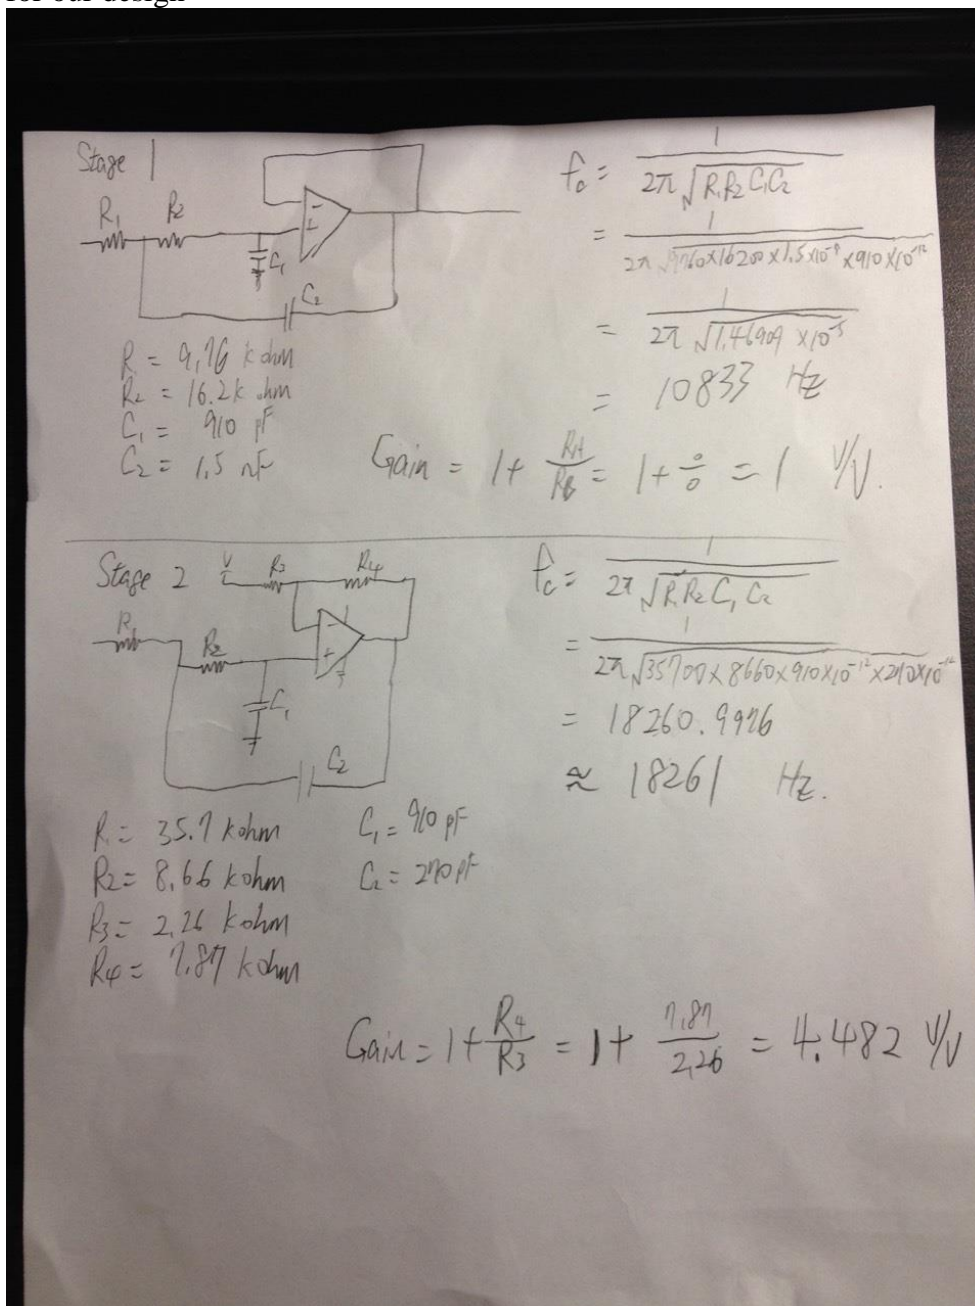 for our design
Stage 1
R₁ R₂
-
+
C₁
C₂
R₁ = 9,76 k ohm
R₂ = 16.2k ohm
C₁ = 910 pF
C₂ = 1,5 nF
f₀ = 1 / 2π √R₁R₂C₁C₂
= 1 / 2π √9760×16200×1,5×10⁻⁹×910×10⁻¹²
= 1 / 2π √1,46909 ×10⁻⁵
= 10833 Hz
Gain = 1 + RA/RB = 1 + 0/0 = 1 V/V.
Stage 2
R₃ R₄
R₁
R₂
-
+
C₁
C₂
R₁ = 35.7 kohm
R2 = 8,66 kohm
R3 = 2,26 kohm
R4 = 7.87 kohm
C₁ = 910 pF
C₂ = 270 pF
fc = 1 / 2π √R₁R₂C₁C₂
= 1 / 2π √35700×8660×910×10⁻¹²×270×10⁻¹²
= 18260.9976
≈ 18261 Hz.
Gain = 1 + R4/R3 = 1 + 7,87/2,26 = 4.482 V/V